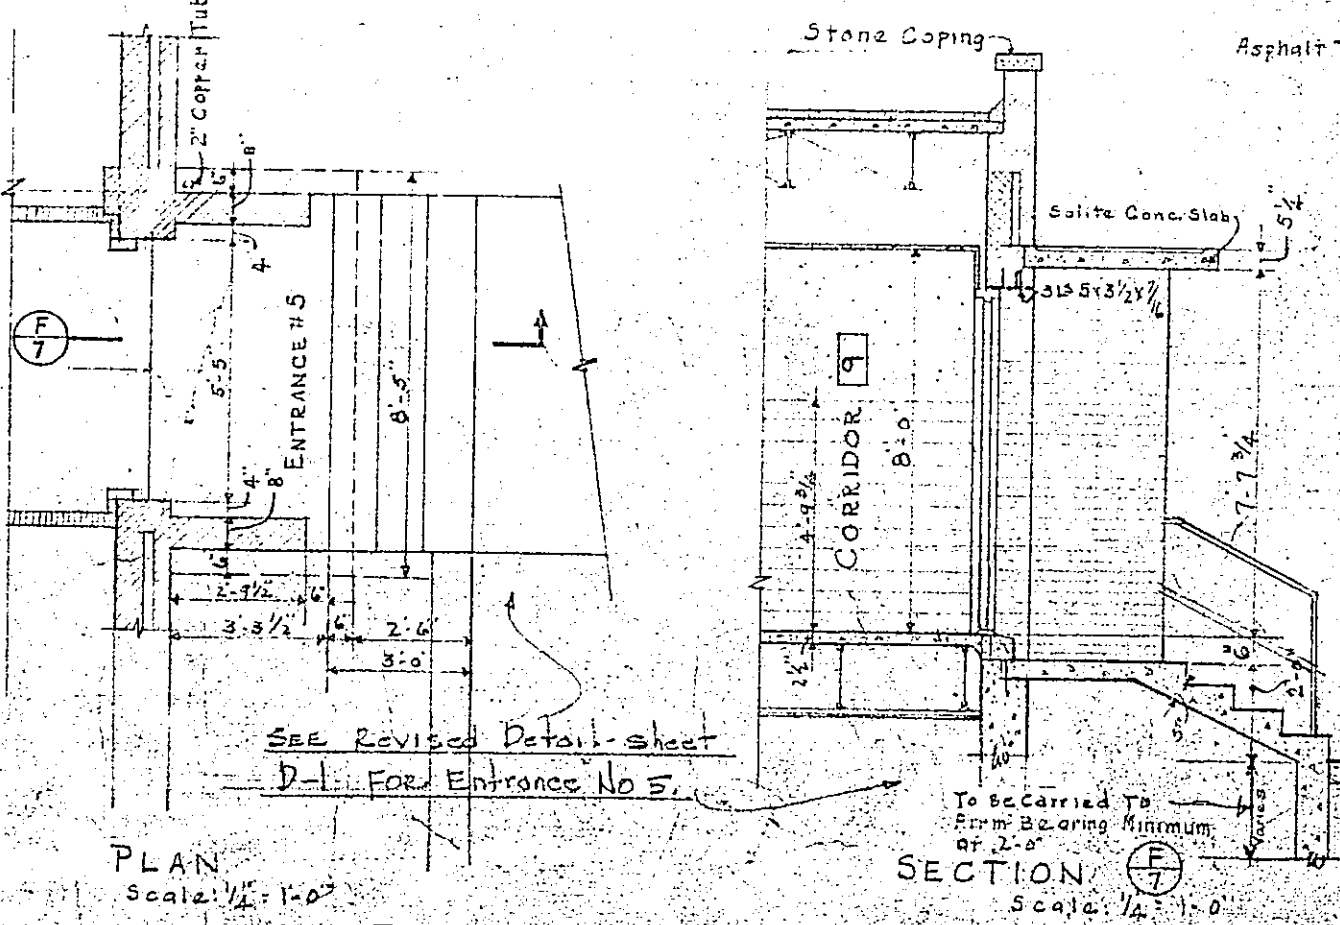 2" Copper Tub
6"
8"
4"
F
7
5'-5"
ENTRANCE #5
8'-5"
4"
8"
6"
2'-9 1/2"
6"
3'-3 1/2"
6"
2'-6"
3'-0"
SEE Revised Detail-sheet
D-1 FOR Entrance No 5.
PLAN
Scale: 1/4" = 1'-0"
Stone Coping
Asphalt
Solite Conc. Slab
5 1/4"
3 LS 5x3 1/2x7/16
9
CORRIDOR
8'-0"
4'-9 3/4"
7'-7 3/4"
2 1/2"
6"
2'-0"
5"
10"
To Be Carried To
Firm Bearing Minimum
of 2'-0"
Varies
10"
SECTION
F
7
Scale: 1/4" = 1'-0"